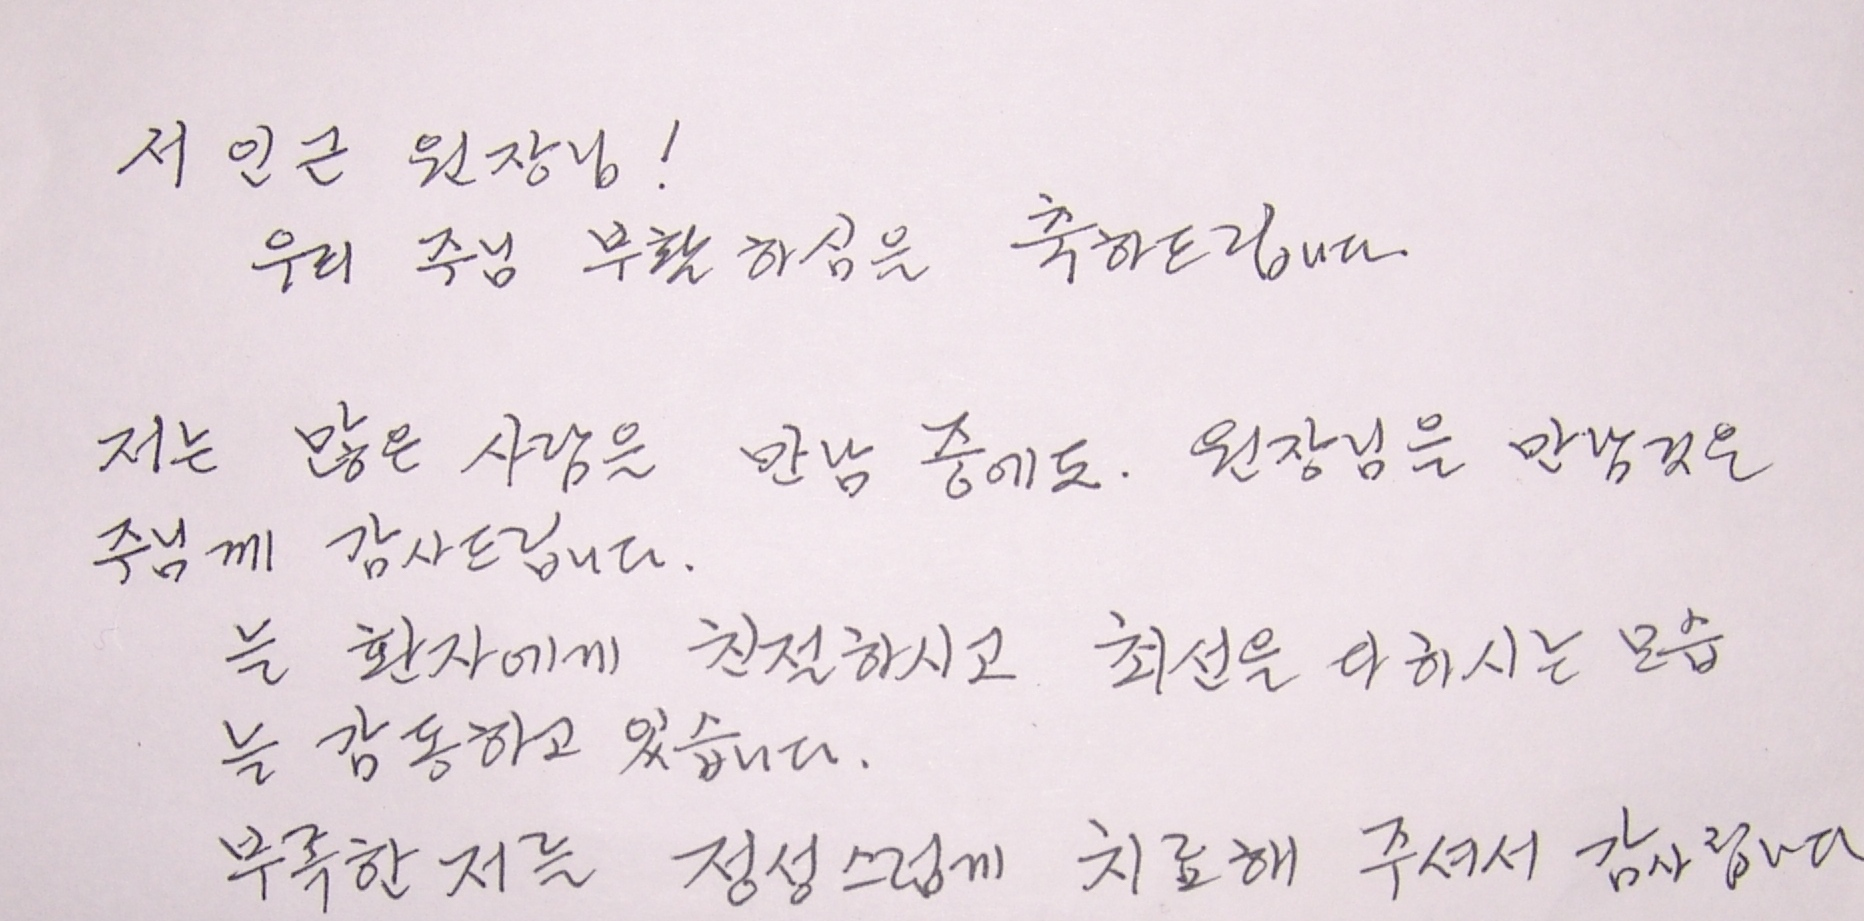 서 인근 원장님!
우리 주님 부활하심을 축하드립니다.
저는 많은 사람을 만남 중에도. 원장님을 만남것은
주님께 감사드립니다.
늘 환자에게 친절하시고 최선을 다하시는 모습
늘 감동하고 있습니다.
부족한 저를 정성스럽게 치료해 주셔서 감사립니다